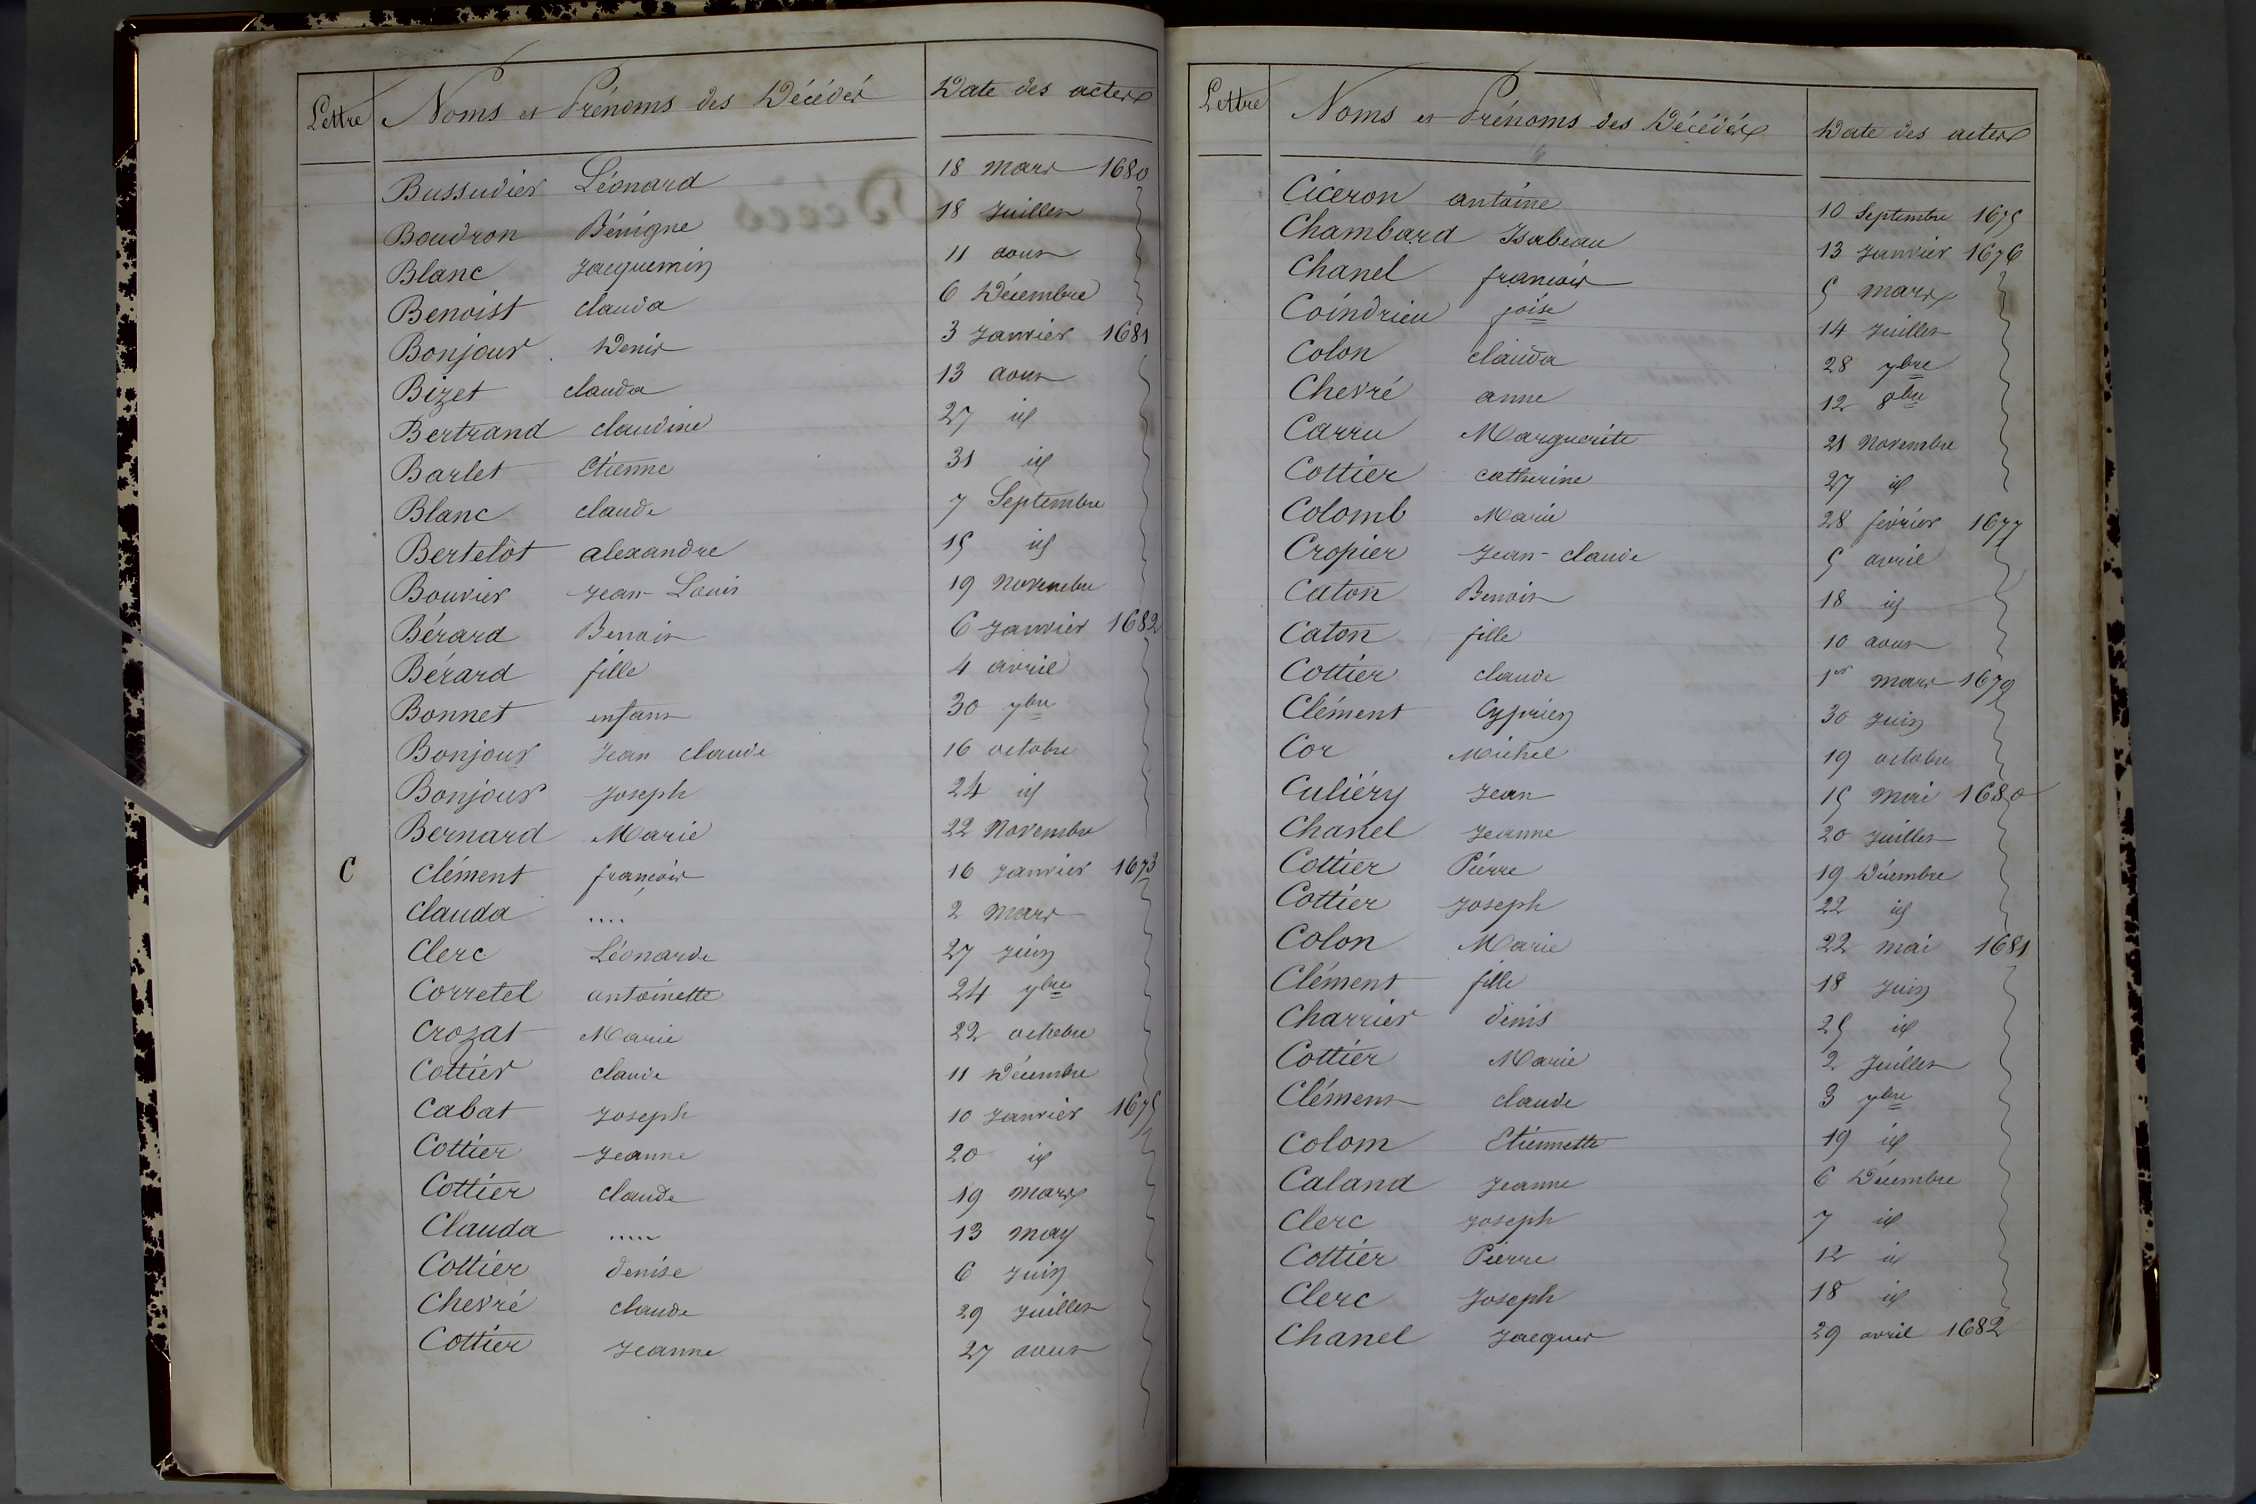 Lettre Noms et Prénoms des Décédés Date des actes
Bussudier Léonard 18 mars 1680
Boudron Bénigne 18 Juillet
Blanc Jacquemin 11 aout
Benoist clauda 6 Décembre
Bonjour Denis 3 Janvier 1681
Bizet clauda 13 aout
Bertrand claudine 27 id
Barlet Etienne 31 id
Blanc claude 7 Septembre
Bertelot alexandre 15 id
Bouvier Jean-Louis 19 Novembre
Bérard Benoit 6 Janvier 1682
Bérard fille 4 avril
Bonnet enfant 30 7bre
Bonjour Jean claude 16 octobre
Bonjour Joseph 24 id
Bernard Marie 22 Novembre
C Clément françois 16 Janvier 1673
Clauda .... 2 Mars
Clerc Léonarde 27 Juin
Corretel antoinette 24 7bre
Crozat Marie 22 octobre
Cottier claude 11 Décembre
Cabat Joseph 10 Janvier 1675
Cottier Jeanne 20 id
Cottier claude 19 mars
Clauda ..... 13 may
Cottier denise 6 Juin
Chevré claude 29 Juillet
Cottier Jeanne 27 aout
Lettre Noms et Prénoms des Décédés Date des actes
Ciceron antoine 10 Septembre 1675
Chambard Isabeau 13 Janvier 1676
Chanel françois 5 mars
Coindrieu foise 14 Juillet
Colon clauda 28 7bre
Chevré anne 12 8bre
Carru Marguerite 21 Novembre
Cottier catherine 27 id
Colomb Marie 28 février 1677
Cropier Jean-claude 5 avril
Caton Benoit 18 id
Caton fille 10 aout
Cottier claude 1er mars 1679
Clément Cyprien 30 Juin
Cor Michel 19 octobre
Culiéry Jean 15 Mai 1680
Chanel Jeanne 20 Juillet
Cottier Pierre 19 Décembre
Cottier Joseph 22 id
Colon Marie 22 mai 1681
Clément fille 18 Juin
Charrier denis 25 id
Cottier Marie 2 Juillet
Clément claude 3 7bre
Colom Etiennette 19 id
Caland Jeanne 6 Décembre
Clerc Joseph 7 id
Cottier Pierre 12 id
Clerc Joseph 18 id
Chanel Jacques 29 avril 1682